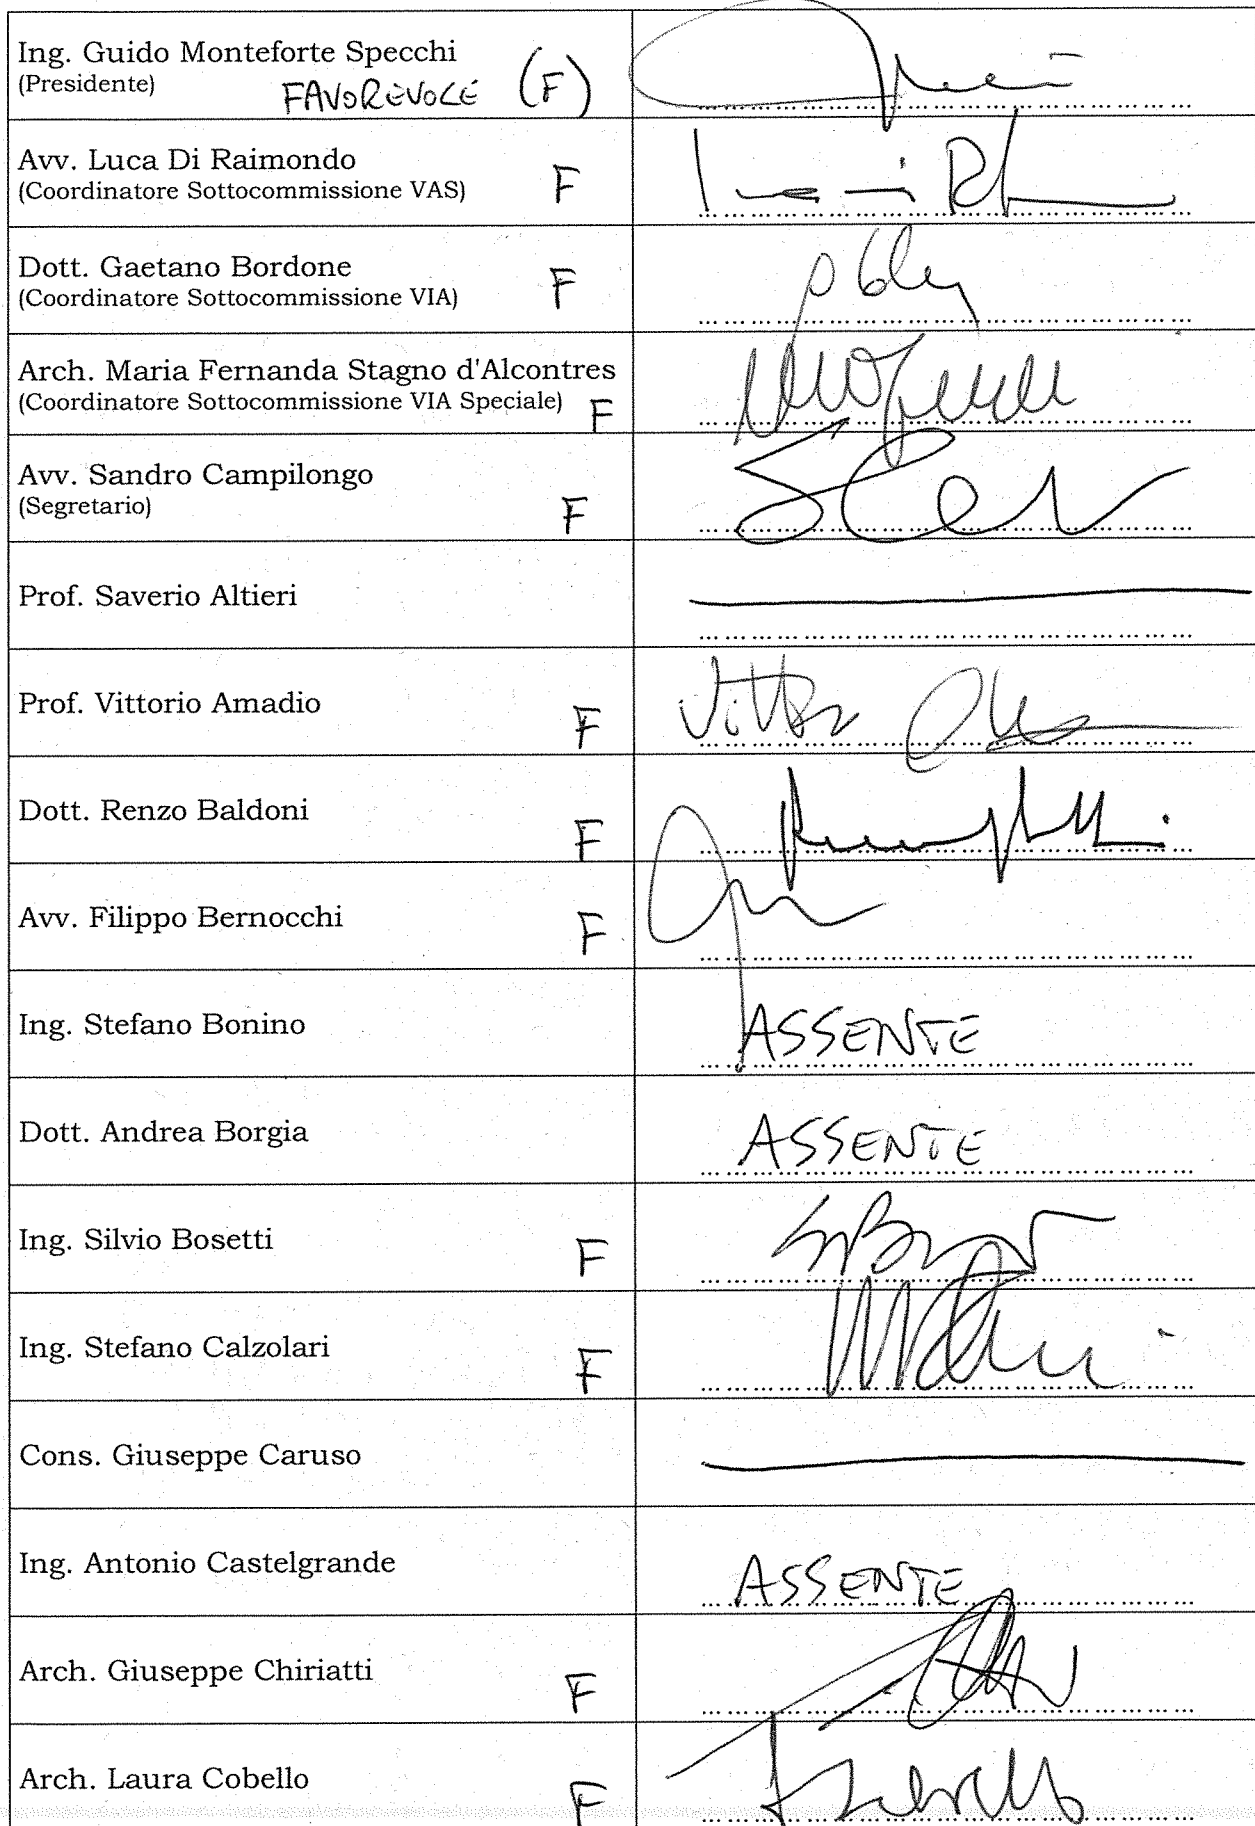 Ing. Guido Monteforte Specchi
(Presidente) FAVOREVOLE (F)
Avv. Luca Di Raimondo
(Coordinatore Sottocommissione VAS) F
Dott. Gaetano Bordone
(Coordinatore Sottocommissione VIA) F
Arch. Maria Fernanda Stagno d'Alcontres
(Coordinatore Sottocommissione VIA Speciale) F
Avv. Sandro Campilongo
(Segretario) F
Prof. Saverio Altieri
Prof. Vittorio Amadio F
Dott. Renzo Baldoni F
Avv. Filippo Bernocchi F
Ing. Stefano Bonino ASSENTE
Dott. Andrea Borgia ASSENTE
Ing. Silvio Bosetti F
Ing. Stefano Calzolari F
Cons. Giuseppe Caruso
Ing. Antonio Castelgrande ASSENTE
Arch. Giuseppe Chiriatti F
Arch. Laura Cobello F